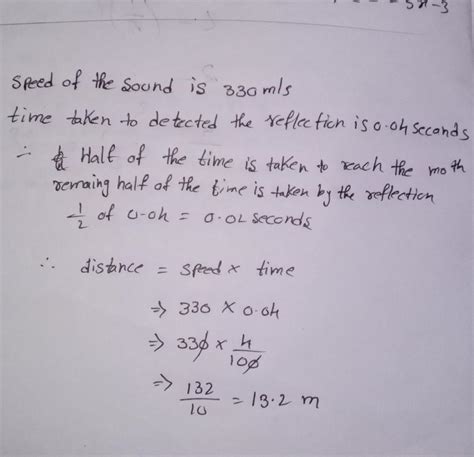 5x-3
speed of the sound is 330 m/s
time taken to detected the reflection is 0.04 seconds
∴ Half of the time is taken to reach the moth
remaing half of the time is taken by the reflection
1/2 of 0.04 = 0.02 seconds
∴ distance = speed x time
⇒ 330 x 0.04
⇒ 330 x 4/100
⇒ 132/10 = 13.2 m